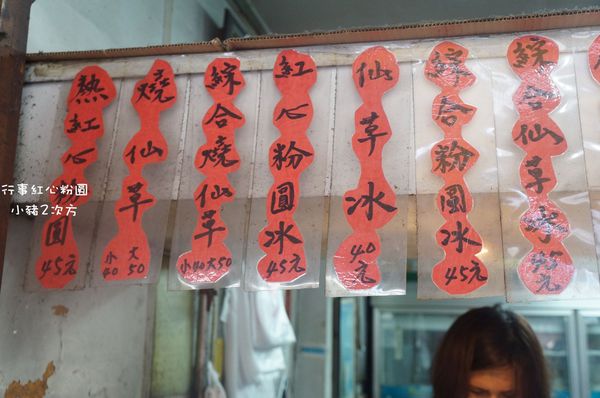 行事紅心粉圓
小豬2次方
熱紅心粉圓
45元
燒仙草
小40
大50
綜合燒仙草
小40大50
紅心粉圓冰
45元
仙草冰
40元
綜合粉圓冰
45元
綜合仙草冰
45元